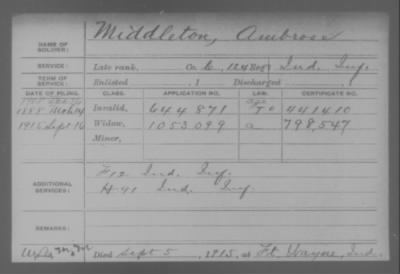 NAME OF SOLDIER: Middleton, Ambrose
SERVICE: Late rank, Co. C, 124 Reg't Ind. Inf.
TERM OF SERVICE: Enlisted , 1 Discharged , 1
DATE OF FILING. CLASS. APPLICATION NO. LAW. CERTIFICATE NO.
1888 Invalid, 644871 441410
1915 Sept 16 Widow, 1053099 a 798,547
Minor,
ADDITIONAL SERVICES: F 12 Ind. Inf.
H 91 Ind. Inf.
REMARKS:
Died Sept 5, 1915, at Ft. Wayne, Ind.